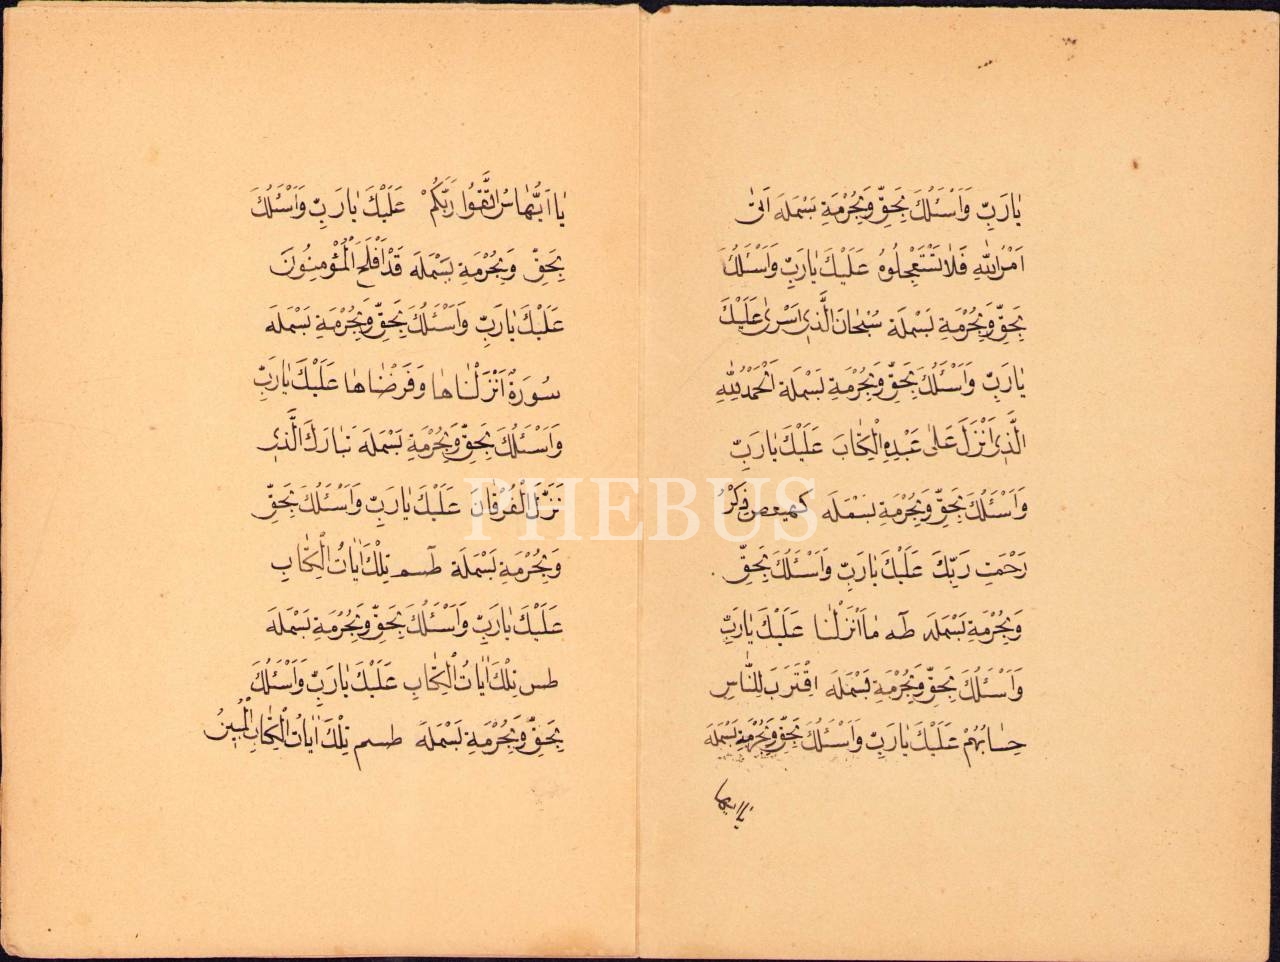 يَارَبِّ وَاَسْئَلُكَ بِحَقِّ وَبِحُرْمَةِ بَسْمَلَهَ اَتٰى
اَمْرُ اللّٰهِ فَلَا تَسْتَعْجِلُوهُ عَلَيْكَ يَارَبِّ وَاَسْئَلُكَ
بِحَقِّ وَبِحُرْمَةِ بَسْمَلَهَ سُبْحَانَ الَّذِى اَسْرٰى عَلَيْكَ
يَارَبِّ وَاَسْئَلُكَ بِحَقِّ وَبِحُرْمَةِ بَسْمَلَهَ اَلْحَمْدُ لِلّٰهِ
الَّذِى اَنْزَلَ عَلٰى عَبْدِهِ الْكِتَابَ عَلَيْكَ يَارَبِّ
وَاَسْئَلُكَ بِحَقِّ وَبِحُرْمَةِ بَسْمَلَهَ كهيعص ذِكْرُ
رَحْمَتِ رَبِّكَ عَلَيْكَ يَارَبِّ وَاَسْئَلُكَ بِحَقِّ
وَبِحُرْمَةِ بَسْمَلَهَ طٰه مَا اَنْزَلْنَا عَلَيْكَ يَارَبِّ
وَاَسْئَلُكَ بِحَقِّ وَبِحُرْمَةِ بَسْمَلَهَ اِقْتَرَبَ لِلنَّاسِ
حِسَابُهُمْ عَلَيْكَ يَارَبِّ وَاَسْئَلُكَ بِحَقِّ وَبِحُرْمَةِ بَسْمَلَهَ
يا ايها
يَا اَيُّهَا سُ اتَّقُوا رَبَّكُمْ عَلَيْكَ يَارَبِّ وَاَسْئَلُكَ
بِحَقِّ وَبِحُرْمَةِ بَسْمَلَهَ قَدْ اَفْلَحَ الْمُؤْمِنُونَ
عَلَيْكَ يَارَبِّ وَاَسْئَلُكَ بِحَقِّ وَبِحُرْمَةِ بَسْمَلَهَ
سُورَةٌ اَنْزَلْنَاهَا وَفَرَضْنَاهَا عَلَيْكَ يَارَبِّ
وَاَسْئَلُكَ بِحَقِّ وَبِحُرْمَةِ بَسْمَلَهَ تَبَارَكَ الَّذِى
نَزَّلَ الْفُرْقَانَ عَلَيْكَ يَارَبِّ وَاَسْئَلُكَ بِحَقِّ
وَبِحُرْمَةِ بَسْمَلَهَ طٓسم تِلْكَ اٰيَاتُ الْكِتَابِ
عَلَيْكَ يَارَبِّ وَاَسْئَلُكَ بِحَقِّ وَبِحُرْمَةِ بَسْمَلَهَ
طس تِلْكَ اٰيَاتُ الْكِتَابِ عَلَيْكَ يَارَبِّ وَاَسْئَلُكَ
بِحَقِّ وَبِحُرْمَةِ بَسْمَلَهَ طسم تِلْكَ اٰيَاتُ الْكِتَابِ الْمُبِينِ
PHEBUS